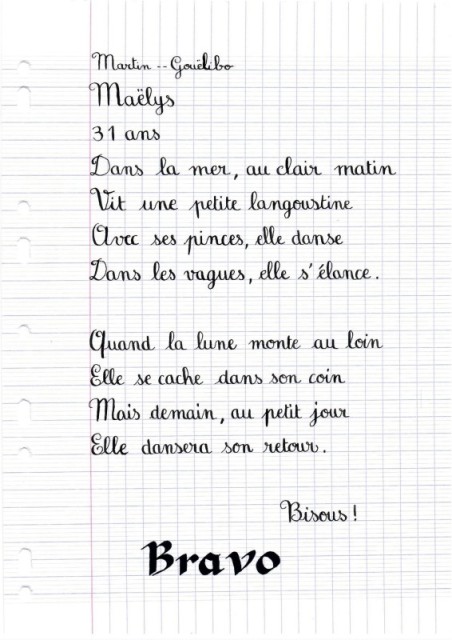 Martin -- Gouëlibo
Maëlys
31 ans
Dans la mer, au clair matin
Vit une petite langoustine
Avec ses pinces, elle danse
Dans les vagues, elle s'élance.
Quand la lune monte au loin
Elle se cache dans son coin
Mais demain, au petit jour
Elle dansera son retour.
Bisous !
Bravo